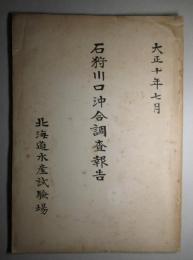 大正十年七月
石狩川口沖合調査報告
北海道水産試験場